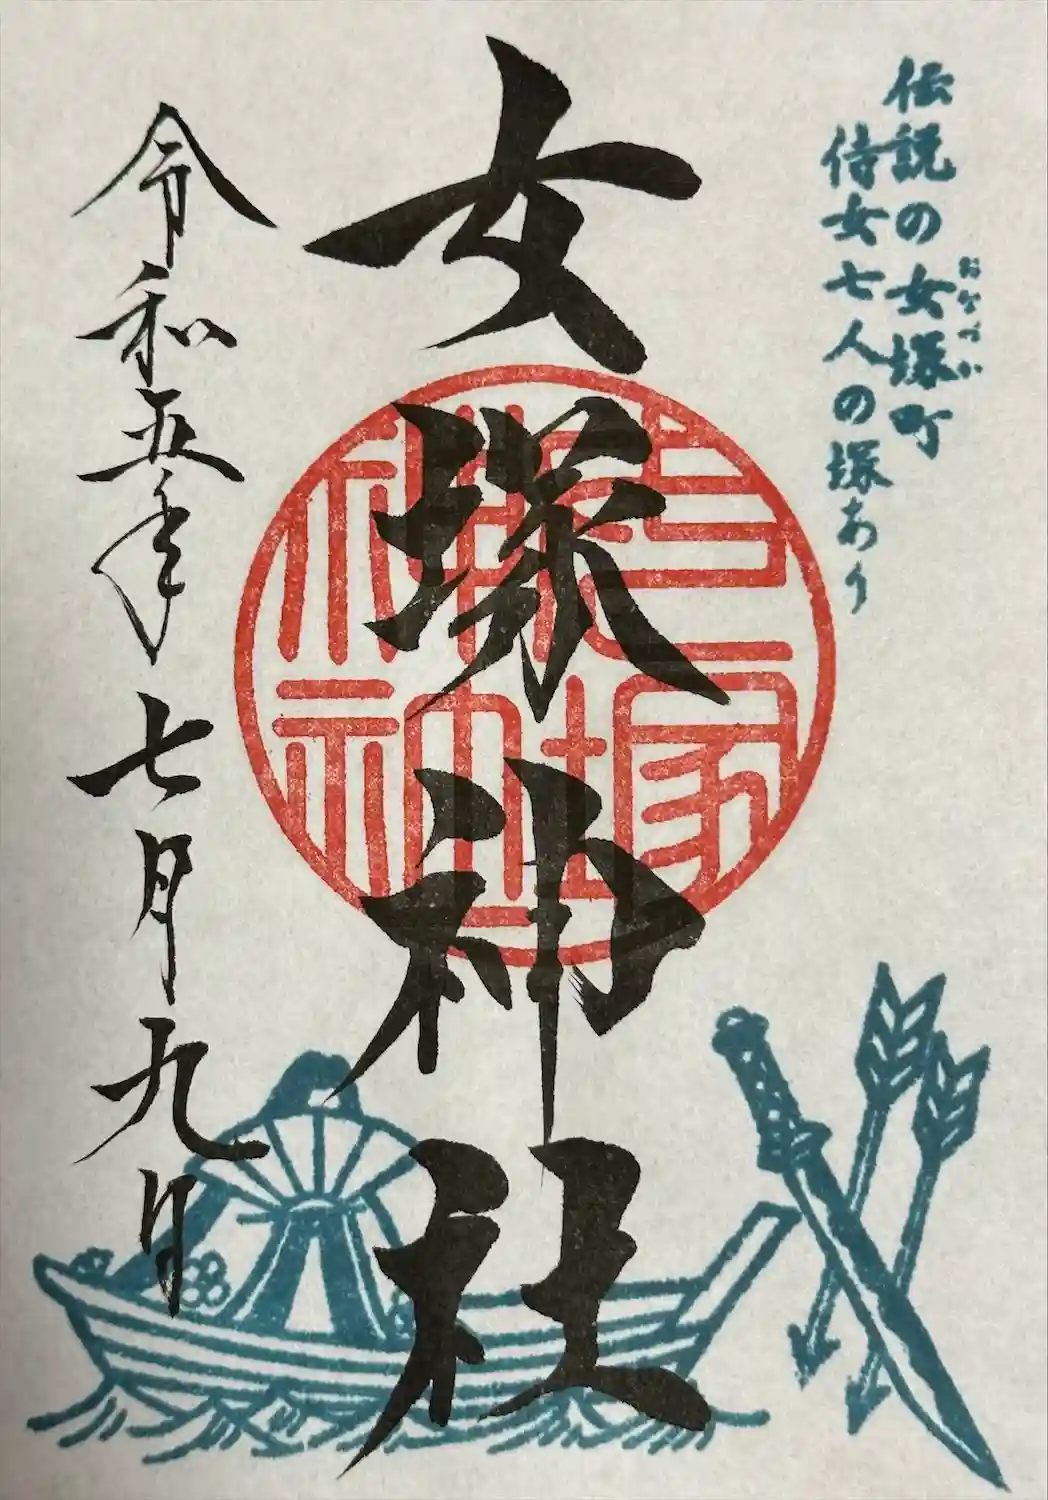 伝説の女塚町
おなづか
侍女七人の塚あり
女塚神社
女塚神社
令和五年七月九日